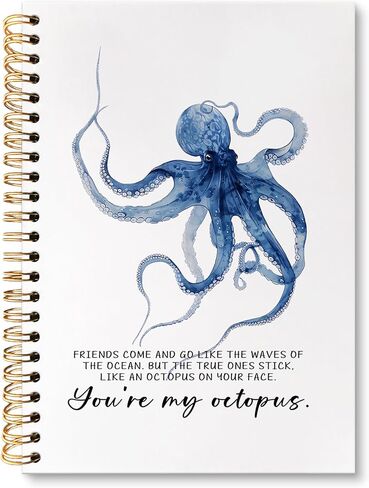 FRIENDS COME AND GO LIKE THE WAVES OF
THE OCEAN. BUT THE TRUE ONES STICK,
LIKE AN OCTOPUS ON YOUR FACE.
You're my octopus.